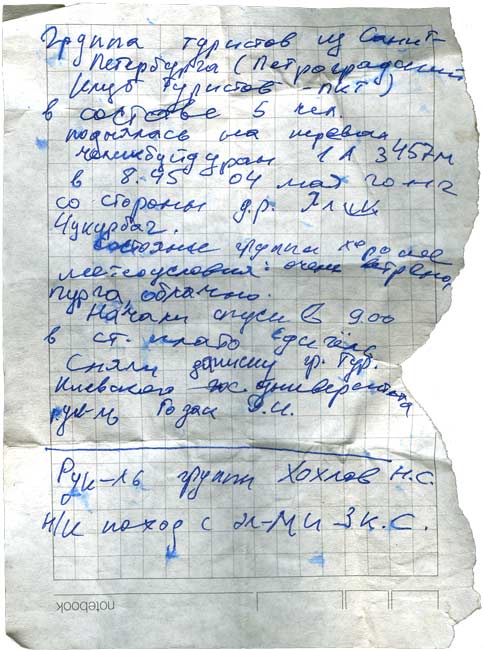 Группа туристов из Санкт-
Петербурга (Петроградский
клуб туристов - ПКТ)
в составе 5 чел.
поднялась на перевал
Чел 1А 3457м
в 8.45 04 мая 20 г
со стороны д.р.
Чукурбаг.
Состояние группы хорошее
метеоусловия: очень ветрено,
пурга, облачно.
Начали спуск в 9.00
в ст. плато Едигёль
Сняли записку гр. тур.
Киевского университета
рук-ль
Рук-ль группы Хохлов Н.С.
н/к поход с эл-ми 3 к.с.
notebook